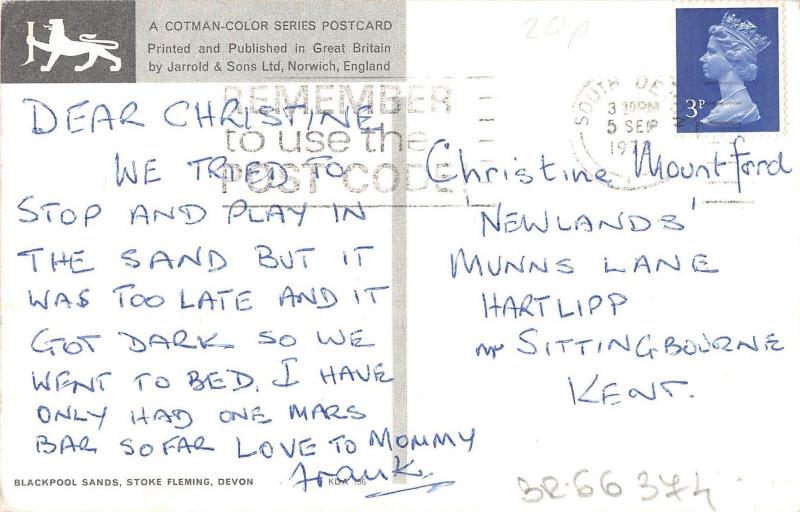 A COTMAN-COLOR SERIES POSTCARD
Printed and Published in Great Britain
by Jarrold & Sons Ltd, Norwich, England
20p
REMEMBER
to use the
POST CODE
SOUTH DE
3 30PM
5 SEP
197
3P
DEAR CHRISTINE,
WE TRIED TO
STOP AND PLAY IN
THE SAND BUT IT
WAS TOO LATE AND IT
GOT DARK SO WE
WENT TO BED. I HAVE
ONLY HAD ONE MARS
BAR SO FAR LOVE TO MOMMY
Frank.
Christine Mountford
'NEWLANDS'
MUNNS LANE
HARTLIPP
nr SITTINGBOURNE
KENT.
BLACKPOOL SANDS, STOKE FLEMING, DEVON
KDA
BR-66 374